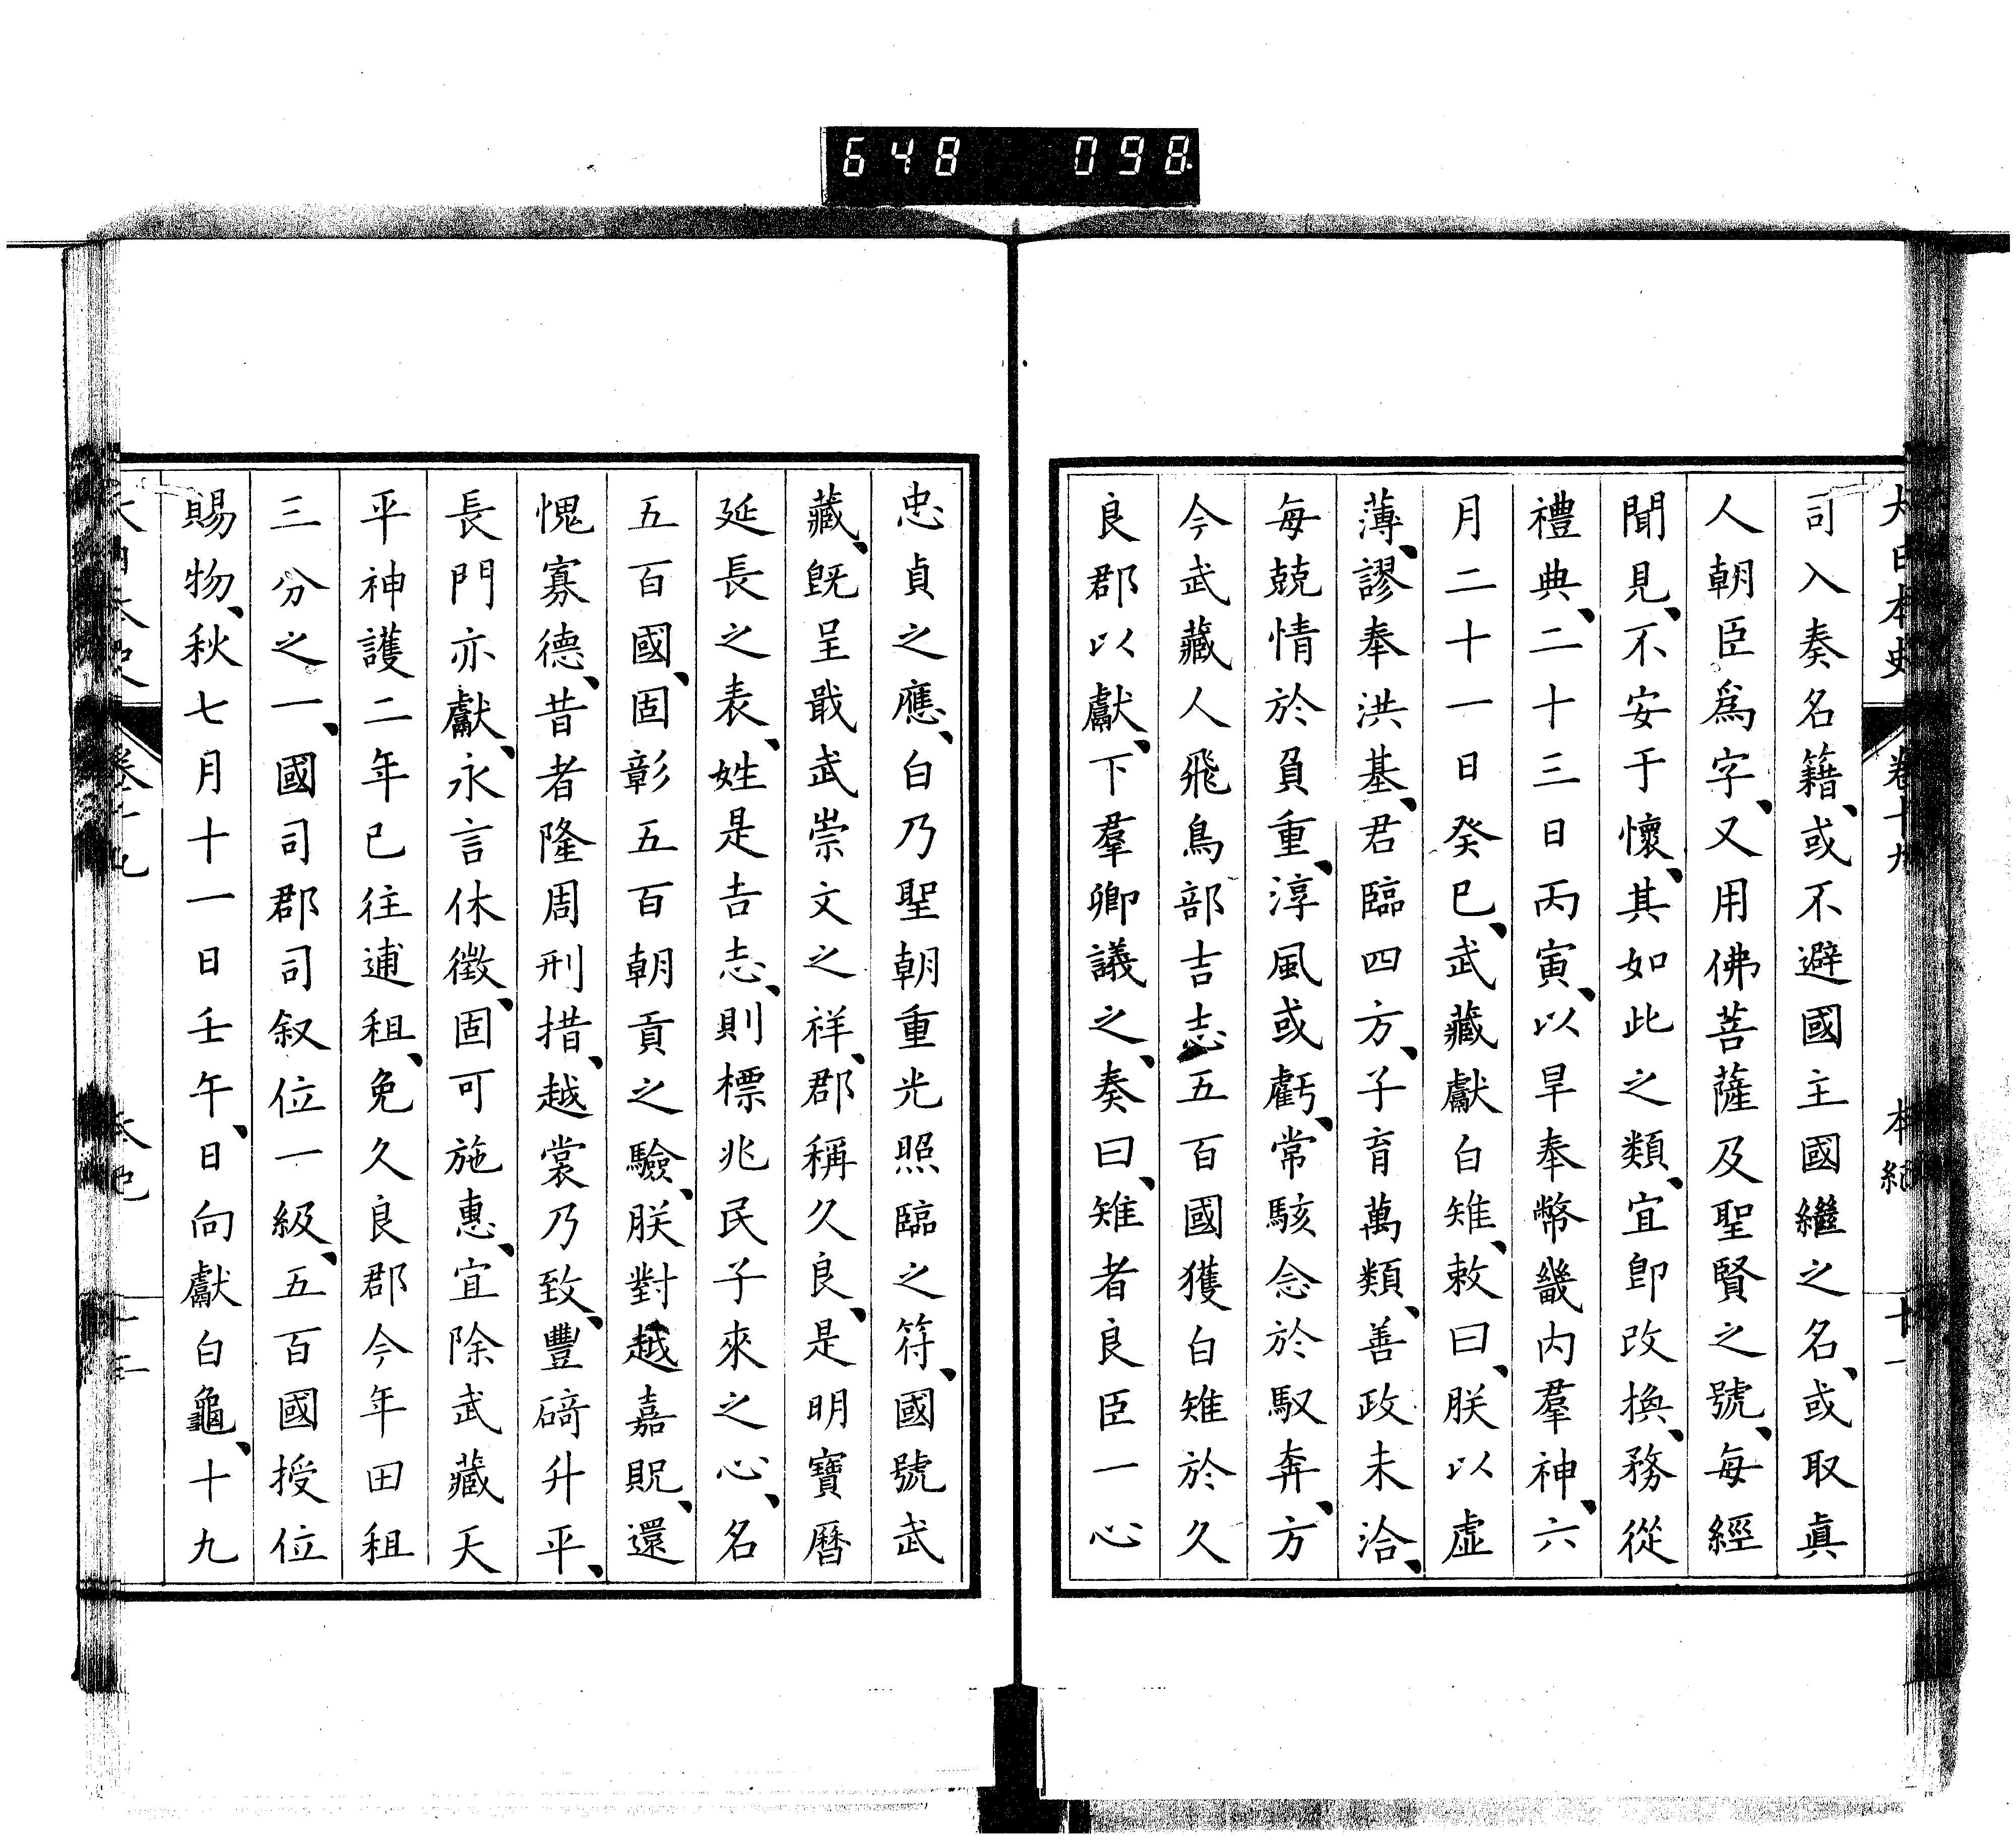 648 098
大日本史 卷十九 本紀 十一
司入奏名籍、或不避國主國繼之名、或取眞
人朝臣爲字、又用佛菩薩及聖賢之號、每經
聞見、不安于懷、其如此之類、宜卽改換、務從
禮典、二十三日丙寅、以旱奉幣畿内羣神、六
月二十一日癸巳、武藏獻白雉、敕曰、朕以虛
薄、謬奉洪基、君臨四方、子育萬類、善政未洽、
每兢情於負重、淳風或虧、常駭念於馭奔、方
今武藏人飛鳥部吉志五百國獲白雉於久
良郡以獻、下羣卿議之、奏曰、雉者良臣一心
忠貞之應、白乃聖朝重光照臨之符、國號武
藏、旣呈戢武崇文之祥、郡稱久良、是明寶曆
延長之表、姓是吉志、則標兆民子來之心、名
五百國、固彰五百朝貢之驗、朕對越嘉貺、還
愧寡德、昔者隆周刑措、越裳乃致、豐碕升平、
長門亦獻、永言休徵、固可施惠、宜除武藏天
平神護二年已往逋租、免久良郡今年田租
三分之一、國司郡司叙位一級、五百國授位
賜物、秋七月十一日壬午、日向獻白龜、十九